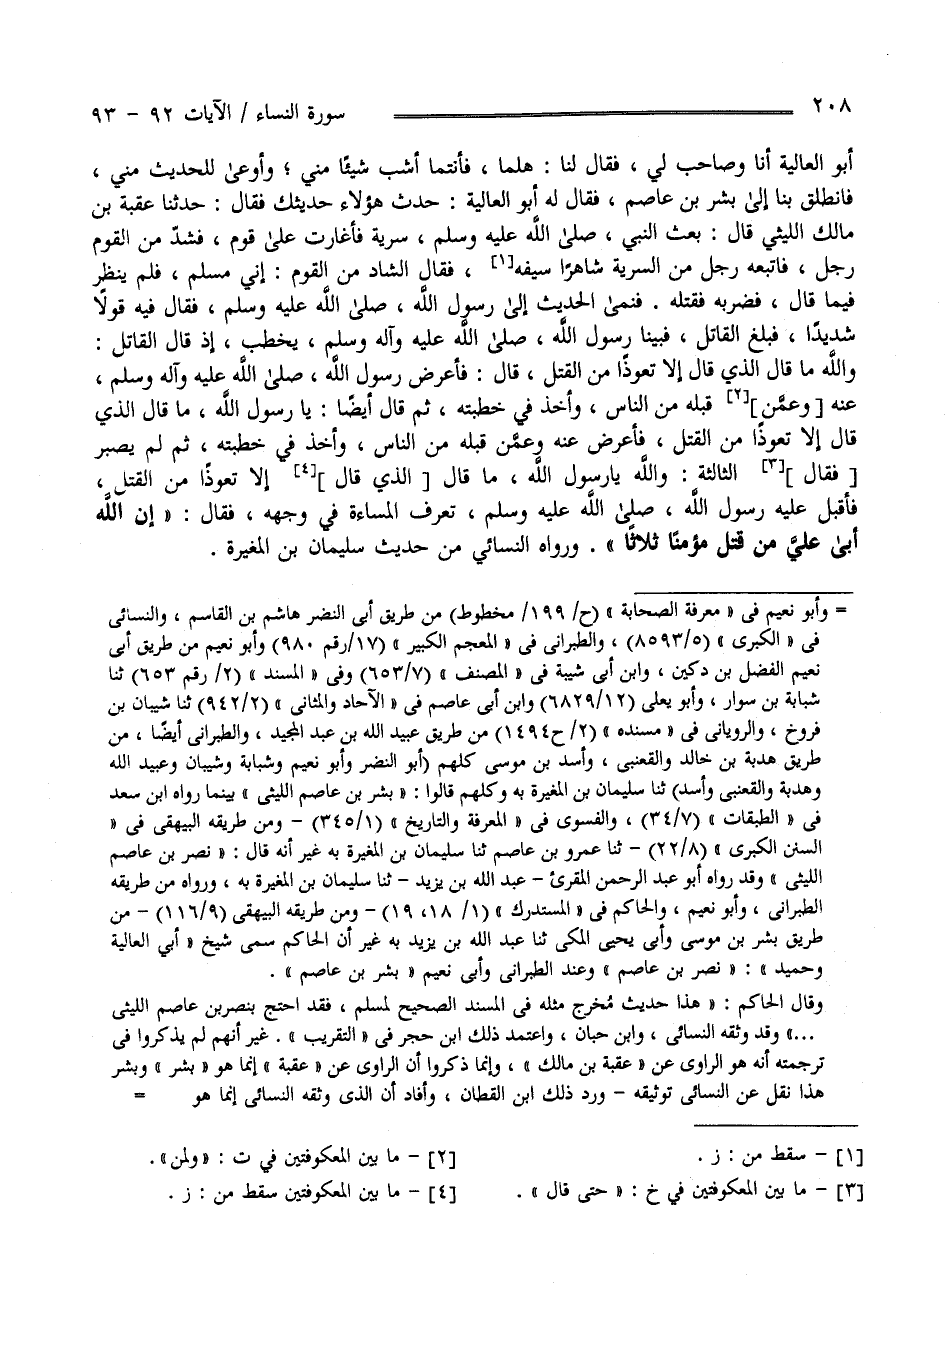 ٢٠٨ سورة النساء / الآيات ٩٢ - ٩٣
أبو العالية أنا وصاحب لي ، فقال لنا : هلما ، فأنتما أشب شيئًا مني ؛ وأوعىٰ للحديث مني ،
فانطلق بنا إلىٰ بشر بن عاصم ، فقال له أبو العالية : حدث هؤلاء حديثك فقال : حدثنا عقبة بن
مالك الليثي قال : بعث النبي ، صلىٰ اللَّه عليه وسلم ، سرية فأغارت علىٰ قوم ، فشدّ من القوم
رجل ، فاتبعه رجل من السرية شاهرًا سيفه[١] ، فقال الشاد من القوم : إني مسلم ، فلم ينظر
فيما قال ، فضربه فقتله . فنمىٰ الحديث إلىٰ رسول اللَّه ، صلىٰ اللَّه عليه وسلم ، فقال فيه قولًا
شديدًا ، فبلغ القاتل ، فبينا رسول اللَّه ، صلىٰ اللَّه عليه وآله وسلم ، يخطب ، إذ قال القاتل :
واللَّه ما قال الذي قال إلا تعوذًا من القتل ، قال : فأعرض رسول اللَّه ، صلىٰ اللَّه عليه وآله وسلم ،
عنه [ وعمَّن ][٢] قبله من الناس ، وأخذ في خطبته ، ثم قال أيضًا : يا رسول اللَّه ، ما قال الذي
قال إلا تعوذًا من القتل ، فأعرض عنه وعمَّن قبله من الناس ، وأخذ في خطبته ، ثم لم يصبر
[ فقال ][٣] الثالثة : واللَّه يارسول اللَّه ، ما قال [ الذي قال ][٤] إلا تعوذًا من القتل ،
فأقبل عليه رسول اللَّه ، صلىٰ اللَّه عليه وسلم ، تعرف المساءة في وجهه ، فقال : « إن اللَّه
أبىٰ عليَّ من قتل مؤمنًا ثلاثًا » . ورواه النسائي من حديث سليمان بن المغيرة .
= وأبو نعيم فى « معرفة الصحابة » (ح/ ١٩٩/ مخطوط) من طريق أبى النضر هاشم بن القاسم ، والنسائى
فى « الكبرى » (٨٥٩٣/٥) ، والطبرانى فى « المعجم الكبير » (١٧/رقم ٩٨٠) وأبو نعيم من طريق أبى
نعيم الفضل بن دكين ، وابن أبى شيبة فى « المصنف » (٦٥٣/٧) وفى « المسند » (٢/ رقم ٦٥٣) ثنا
شبابة بن سوار ، وأبو يعلى (٦٨٢٩/١٢) وابن أبى عاصم فى « الآحاد والمثانى » (٩٤٢/٢) ثنا شيبان بن
فروخ ، والرويانى فى « مسنده » (٢/ ح١٤٩٤) من طريق عبيد الله بن عبد المجيد ، والطبرانى أيضًا ، من
طريق هدبة بن خالد والقعنبى ، وأسد بن موسى كلهم (أبو النضر وأبو نعيم وشبابة وشيبان وعبيد الله
وهدبة والقعنبى وأسد) ثنا سليمان بن المغيرة به وكلهم قالوا : « بشر بن عاصم الليثى » بينما رواه ابن سعد
فى « الطبقات » (٣٤/٧) ، والفسوى فى « المعرفة والتاريخ » (٣٤٥/١) - ومن طريقه البيهقى فى «
السنن الكبرى » (٢٢/٨) - ثنا عمرو بن عاصم ثنا سليمان بن المغيرة به غير أنه قال : « نصر بن عاصم
الليثى » وقد رواه أبو عبد الرحمن المقرئ - عبد الله بن يزيد - ثنا سليمان بن المغيرة به ، ورواه من طريقه
الطبرانى ، وأبو نعيم ، والحاكم فى « المستدرك » (١/ ١٨، ١٩) - ومن طريقه البيهقى (١١٦/٩) - من
طريق بشر بن موسى وأبى يحيى المكى ثنا عبد الله بن يزيد به غير أن الحاكم سمى شيخ « أبي العالية
وحميد » : « نصر بن عاصم » وعند الطبرانى وأبى نعيم « بشر بن عاصم » .
وقال الحاكم : « هذا حديث مُخرج مثله فى المسند الصحيح لمسلم ، فقد احتج بنصربن عاصم الليثى
...» وقد وثقه النسائى ، وابن حبان ، واعتمد ذلك ابن حجر فى « التقريب » . غير أنهم لم يذكروا فى
ترجمته أنه هو الراوى عن « عقبة بن مالك » ، وإنما ذكروا أن الراوى عن « عقبة » إنما هو « بشر » وبشر
هذا نقل عن النسائى توثيقه - ورد ذلك ابن القطان ، وأفاد أن الذى وثقه النسائى إنما هو =
[١] - سقط من : ز . [٢] - ما بين المعكوفتين في ت : «ولمن» .
[٣] - ما بين المعكوفتين في خ : « حتى قال » . [٤] - ما بين المعكوفتين سقط من : ز .